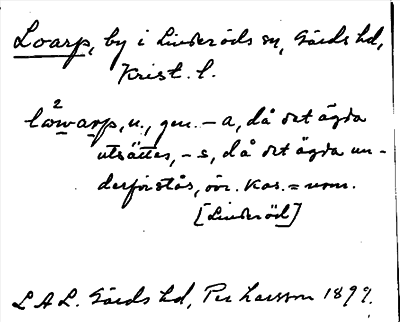 Loarp, by i Linderöds sn, Gärds hd,
Krist. l.
2
lωwarp, n., gen. -a, då det ägda
utsättes, -s, då det ägda un-
derförstås, övr. kas. = nom.
[Linderöd]
LAL. Gärds hd, Per Larsson 1899.